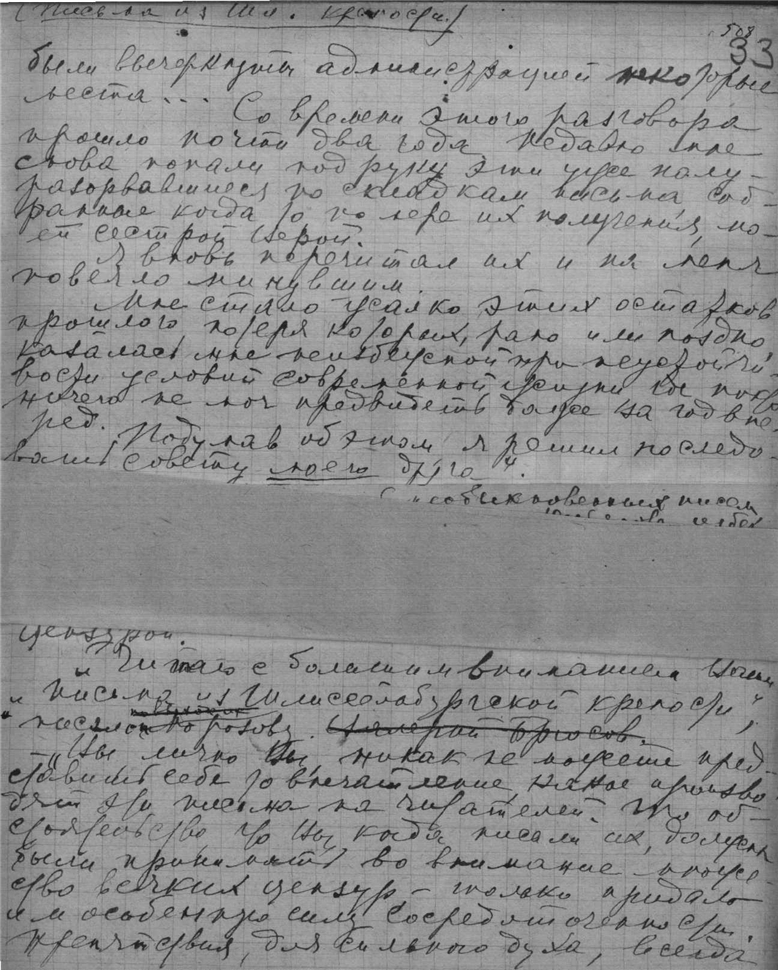 (Письма из Шл. крепости.)
508
33
были вычеркнуты администрацией некоторые
места... Со времени этого разговора
прошло почти два года. Недавно мне
снова попали под руку эти уже полу-
разорвавшиеся по складкам письма соб-
ранные когда то по мере их получения, мо-
ей сестрой Верой.
Я вновь перечитал их и на меня
повеяло минувшим.
Мне стало жалко этих остатков
прошлого, потеря которых, рано или поздно
казалась мне неизбежной при неустойчи-
вости условий современной жизни где никто
ничего не мог предвидеть более за год впе-
ред. Подумав об этом я решил последо-
вать совету моего друга".
обыкновенных писем
цензурой.
„Читаю с большим вниманием Ваши
„Письма из Шлиссельбургской крепости",
писал Морозову Валерий Брюсов.
„Вы лично Вы никак не можете пред-
ставить себе то впечатление, какое произво-
дят эти письма на читателей. То об-
стоятельство, что Вы, когда писали их, должны
были принимать во внимание множе-
ство всяких цензур – только придало
им особенную силу сосредоточенности
Препятствия, для сильного духа, всегда